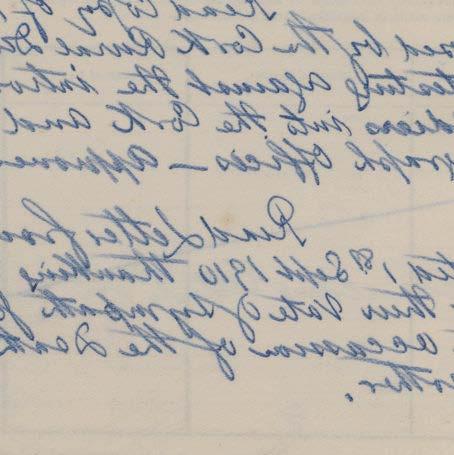 Read Copy of
sed by the Cork Rural Di
testing against the intro
diers into the Cork and
graph Offices — approve
Read Letter fro
ted 1st Sept 1910 thanking
their Vote of Sympath
occasion of the Death
rother.